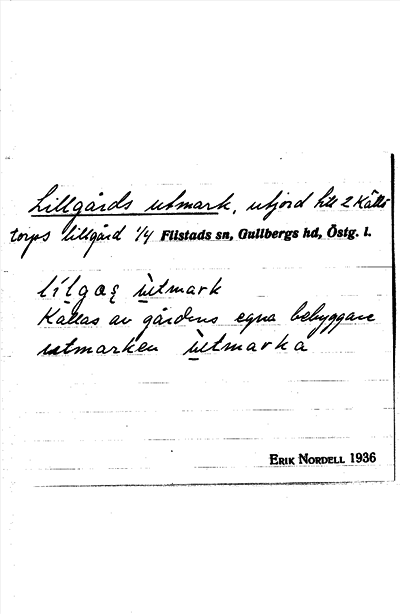 Lillgårds utmark, utjord till 2 Källs
torps lillgård 1/4 Flistads sn, Gullbergs hd, Östg. l.
lílgaș ùtmark
Kallas av gårdens egna bebyggare
utmarken ùtmarka
ERIK NORDELL 1936